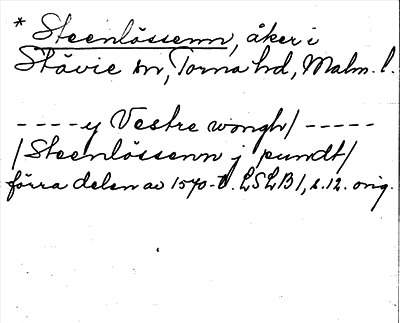 * Steenlössenn, åker i
Stävie sn, Torna hd, Malm. l.
----y Vestre wongh/-----
/Steenlössenn j pundt/
förra delen av 1570-t. LSLB 1, s. 12. orig.